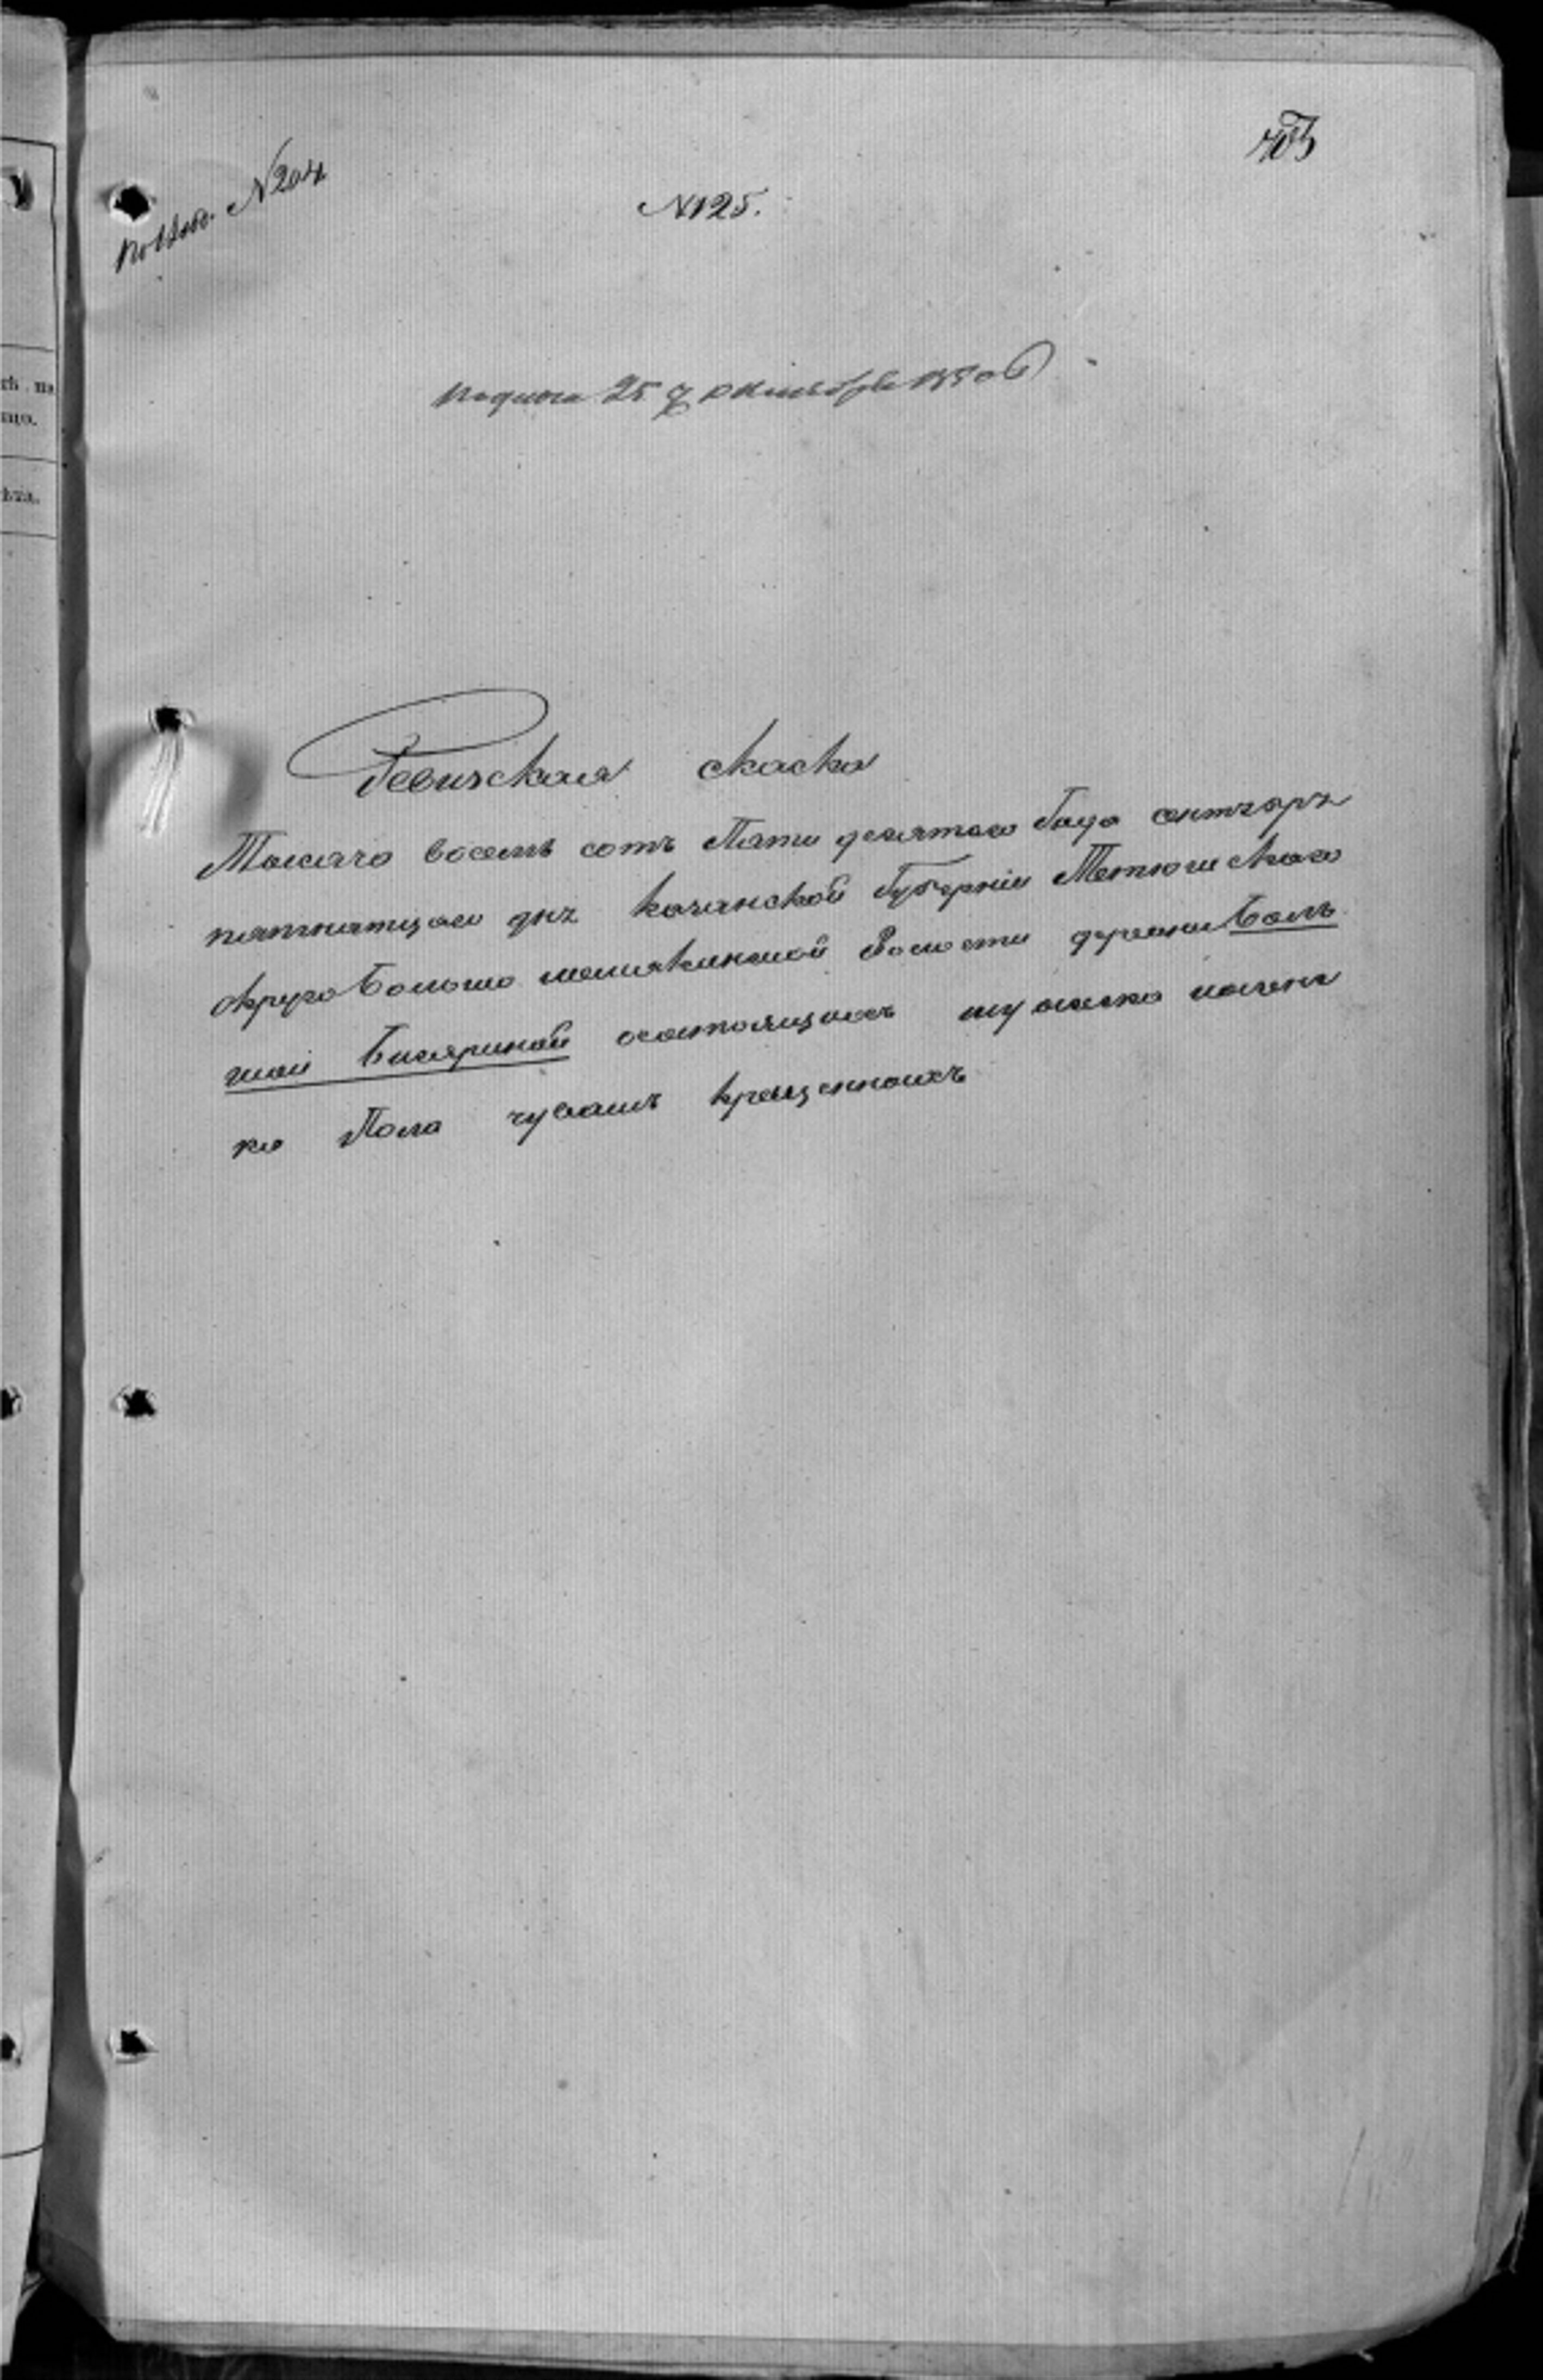 403
По Алф. №204
№125.
Подана 25 Октября 1850 г
Ревизская скаска
Тысяча восемь сотъ Пяти десятаго Года сентебря
пятнатцаго дня казанской Губерніи Тетюшскаго
округа Большо шемякинской Волости деревни Боль
шой Бисяриной осостоящихъ мужеска иженс
ка Пола чувашъ крещенныхъ